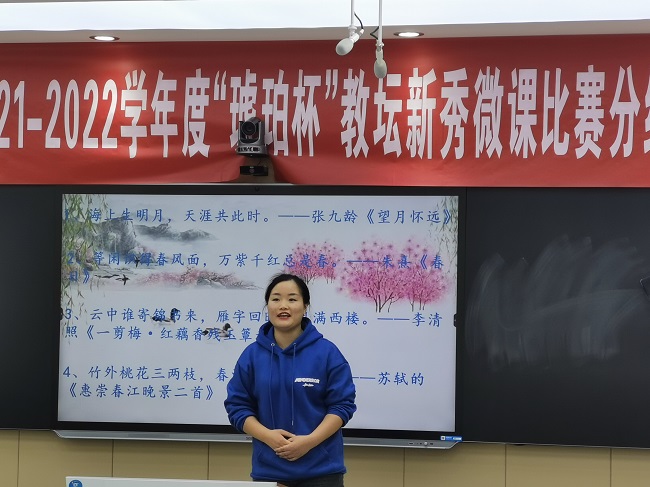 21-2022学年度“琥珀杯”教坛新秀微课比赛分
1、海上生明月，天涯共此时。——张九龄《望月怀远》
2、等闲识得春风面，万紫千红总是春。——朱熹《春
日》
3、云中谁寄锦书来，雁字回 满西楼。——李清
照《一剪梅·红藕香残玉簟
4、竹外桃花三两枝，春 ——苏轼的
《惠崇春江晚景二首》